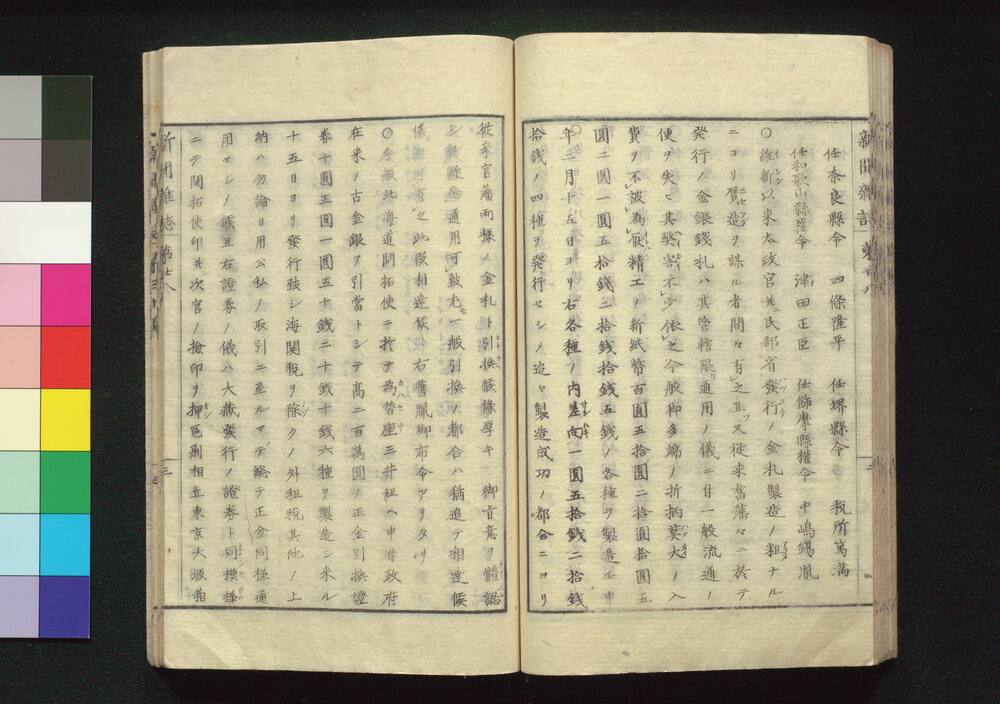 新聞雑誌 第廿八
任奈良縣令 四條隆平 任堺縣令 税所篤
任和歌山縣權令 津田正臣 任飾摩縣權令 中嶋錫胤
○維新以来太政官並民部省發行ノ金札製造ノ粗ナル
ニヨリ贋造ヲ謀ル者間々有之且ツ又従来舊藩々ニ於テ
發行ノ金銀錢札ハ其管轄限通用ノ儀ニ付一般流通ノ
便ヲ失ヒ其弊害不少依之今般御多端ノ折柄莫大ノ入
費ヲ不被為厭精工ノ新紙幣百圓五十圓二十圓拾圓五
圓二圓一圓五拾錢二拾錢拾錢五錢ノ各種ヲ製造セ申
年二月十五日ヨリ右各種ノ内差向一圓五拾錢二拾錢
拾錢ノ四種ヲ發行セシメ追々製造成功ノ都合ニヨリ
從来官藩両様ノ金札ト引換候條厚キ御旨意ヲ體認
シ無疑念通用可致尤一般引換ノ都合ハ猶追テ相達候
儀可有之此段相達候 右舊臘御布令アリタリ
○今般北海道開拓使ニ於テ為替座三井組ヘ申付政府
在来ノ古金銀ヲ引當トシテ高二百五十萬圓ノ正金引換證
券十圓五圓一圓五十錢二十錢十錢六種ヲ製造シ来ル
十五日ヨリ發行致シ海関税ヲ除クノ外租税其他ノ上
納ハ勿論日用公私ノ取引ニ至ルマデ総テ正金同様通
用セシメ候且右證券ノ儀ハ大蔵發行ノ證券ト同模様
ニテ開拓使印並次官ノ撿印ヲ押區別相立東京大坂箱
新聞雑誌 第廿八